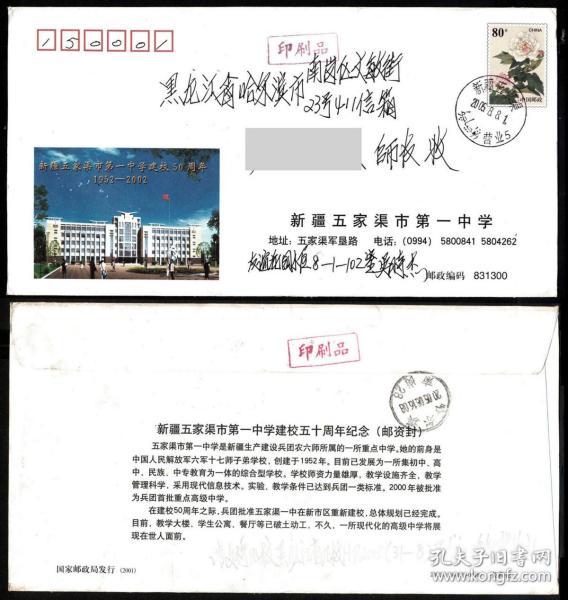 150001
印刷品
80分
CHINA
中国邮政
黑龙江省哈尔滨市南岗区文敏街
23号411信箱
收
营业5
新疆五家渠市第一中学建校50周年
1952—2002
新疆五家渠市第一中学
地址：五家渠军垦路 电话：(0994) 5800841 5804262
8-1-102
邮政编码 831300
印刷品
新疆五家渠市第一中学建校五十周年纪念（邮资封）
五家渠市第一中学是新疆生产建设兵团农六师所属的一所重点中学。她的前身是
中国人民解放军六军十七师子弟学校，创建于1952年。目前已发展为一所集初中、高
中、民族、中专教育为一体的综合型学校。学校师资力量雄厚，教学设施齐全，教学
管理科学，采用现代信息技术。实验、教学条件已达到兵团一类标准。2000年被批准
为兵团首批重点高级中学。
在建校50周年之际，兵团批准五家渠一中在新市区重新建校，总体规划已经完成。
目前，教学大楼、学生公寓、餐厅等已破土动工，不久，一所现代化的高级中学将展
现在世人面前。
国家邮政局发行 (2001)
孔夫子旧书网
kongfz.com